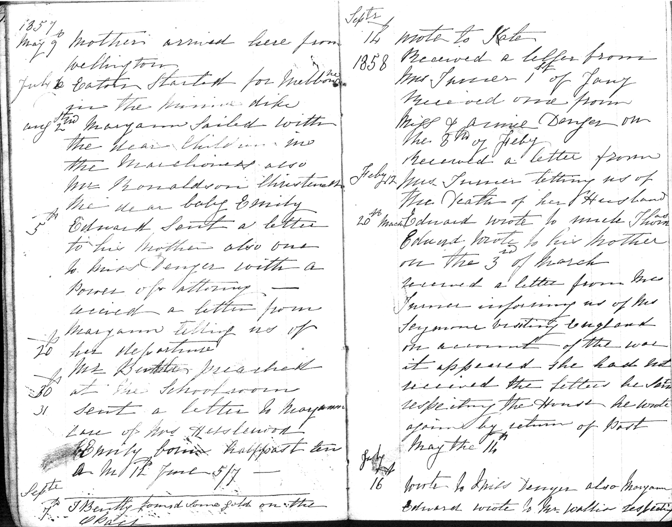 1857
May 9th Mother arrived here from
Wellington
July Eaton Started for Melbourne
in the
Augst 2nd Maryann Sailed with
the dear Children in
the Marchioness also
Mr Ronaldson Christened
the dear baby Emily
5th Edward Sent a letter
to his Mother also one
to Denger with a
Power of attorny —
recived a letter from
Maryann telling us of
20th her departure
Mr preached
30th at the Schoolroom
31 Sent a letter to Maryann
care of Mrs
Emily born halfpast ten
a M 1st June 57 —
Septr
7th J Bently found some gold on the

Septr
14th wrote to Kate
1858 Received a letter from
Mrs Turner 1st of Jany
Received one from
Miss Denger on
the 8th of Feby
Received a letter from
Feby 12 Mrs Turner telling us of
the Death of her Husband
20th March Edward wrote to uncle Thorn
Edward wrote to his Mother
on the 3rd of March
received a letter from Mrs
Turner informing us of Mrs
Seymore visiting England
on account of the war
it appeared she had not
received the letters he
respecting the House he wrote
again by return of Post
May the 14th
July
16th wrote to Miss Denger also Maryann
Edward wrote to Mr Wallis